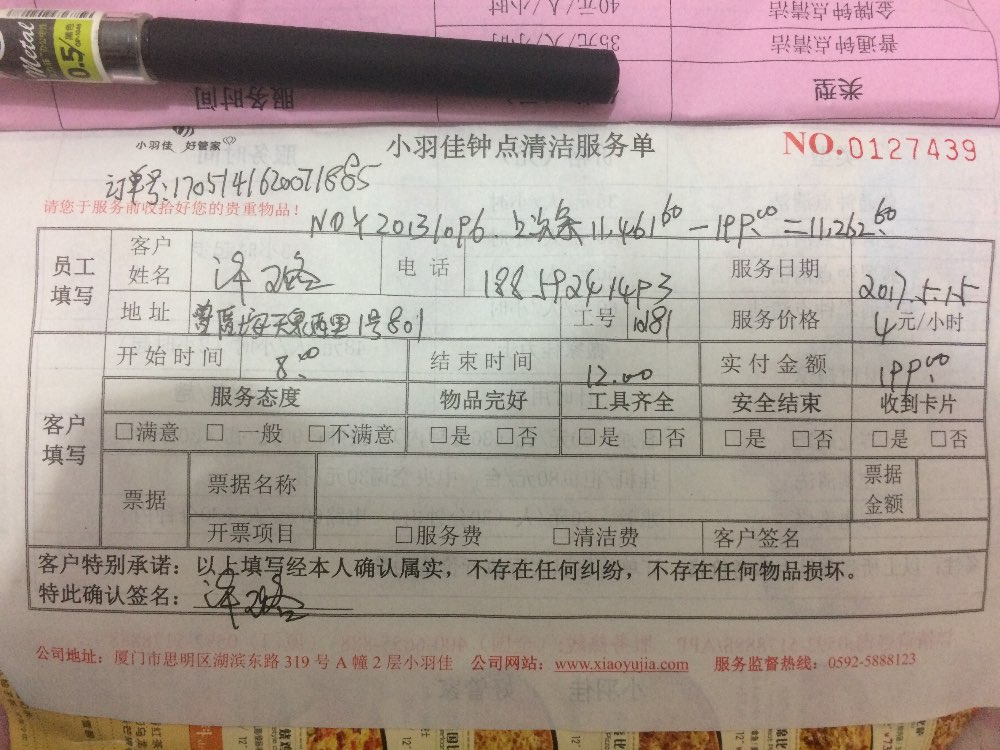 金牌钟点清洁 40元/人/小时
普通钟点清洁 35元/人/小时
类型 服务时间
Metal 0.5
小羽佳 好管家
小羽佳钟点清洁服务单
NO.0127439
订单号:
请您于服务前收拾好您的贵重物品!
11,461.60 - 199.00 = 11,262.60
员工填写 客户姓名 电话 188 5924 1493 服务日期 2017.5.15
地址 1号801 工号 10181 服务价格 4 元/小时
开始时间 8:00 结束时间 12:00 实付金额 199.00
客户填写 服务态度 物品完好 工具齐全 安全结束 收到卡片
□满意 □一般 □不满意 □是 □否 □是 □否 □是 □否 □是 □否
票据 票据名称 票据金额
开票项目 □服务费 □清洁费 客户签名
客户特别承诺:以上填写经本人确认属实,不存在任何纠纷,不存在任何物品损坏。
特此确认签名:
公司地址:厦门市思明区湖滨东路 319 号 A 幢 2 层小羽佳 公司网站:www.xiaoyujia.com 服务监督热线:0592-5888123